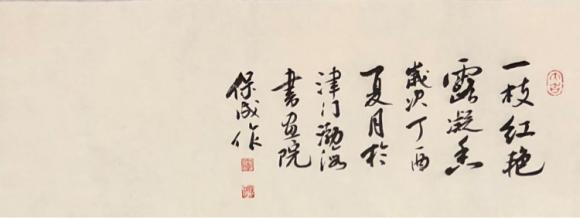 一枝红艳
露凝香
歲次丁酉
夏月於
津门渤海
书画院
保成作